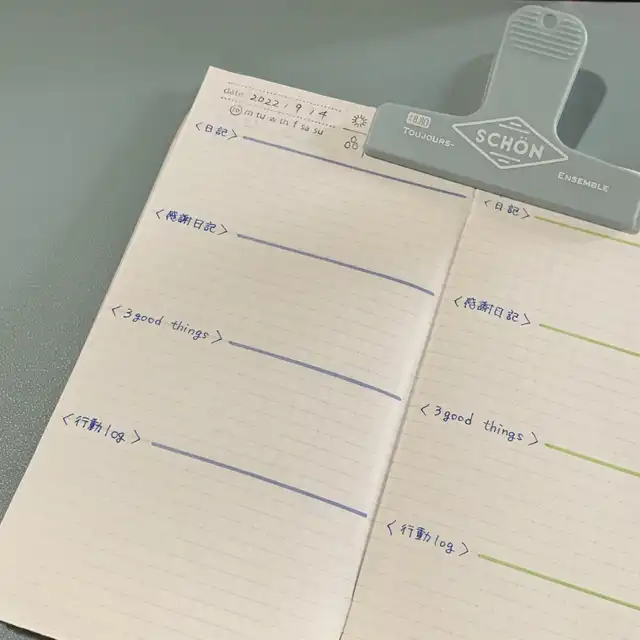 date 2022 / 9 / 4
m tu w th f sa su
〈日記〉
〈感謝日記〉
〈3 good things〉
〈行動log〉
TOUJOURS-
SCHÖN
ENSEMBLE
〈日記〉
〈感謝日記〉
〈3 good things〉
〈行動log〉